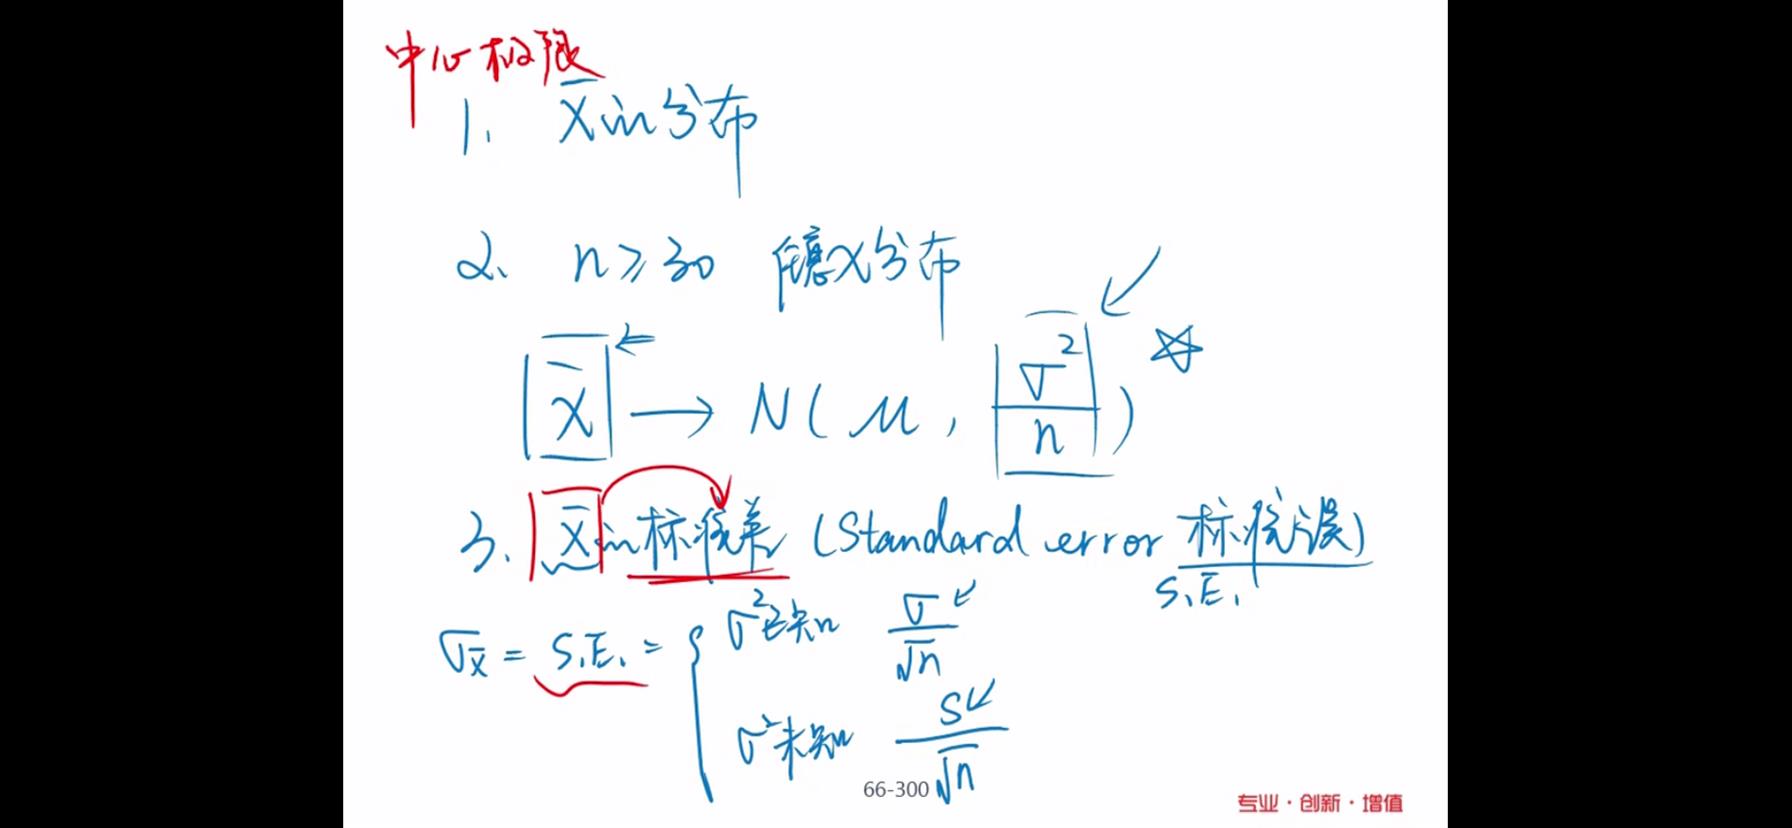 中心极限
1. X̄的分布
2. n≥30 任意X分布
X̄ → N(μ, σ²/n)
3. X̄的标准差 (Standard error 标准误)
S.E.
σx̄ = S.E. = { σ²已知 σ/√n
σ²未知 S/√n
66-300
专业·创新·增值